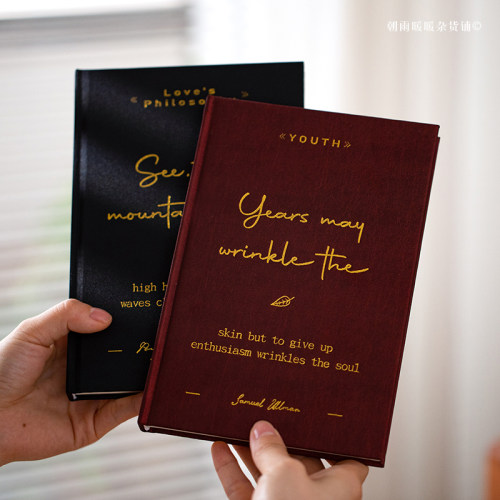 朝雨暖暖杂货铺©
«Love's
Philoso
See
mounta
high h
waves c
«YOUTH»
Years may
wrinkle the
skin but to give up
enthusiasm wrinkles the soul
Samuel Ullman